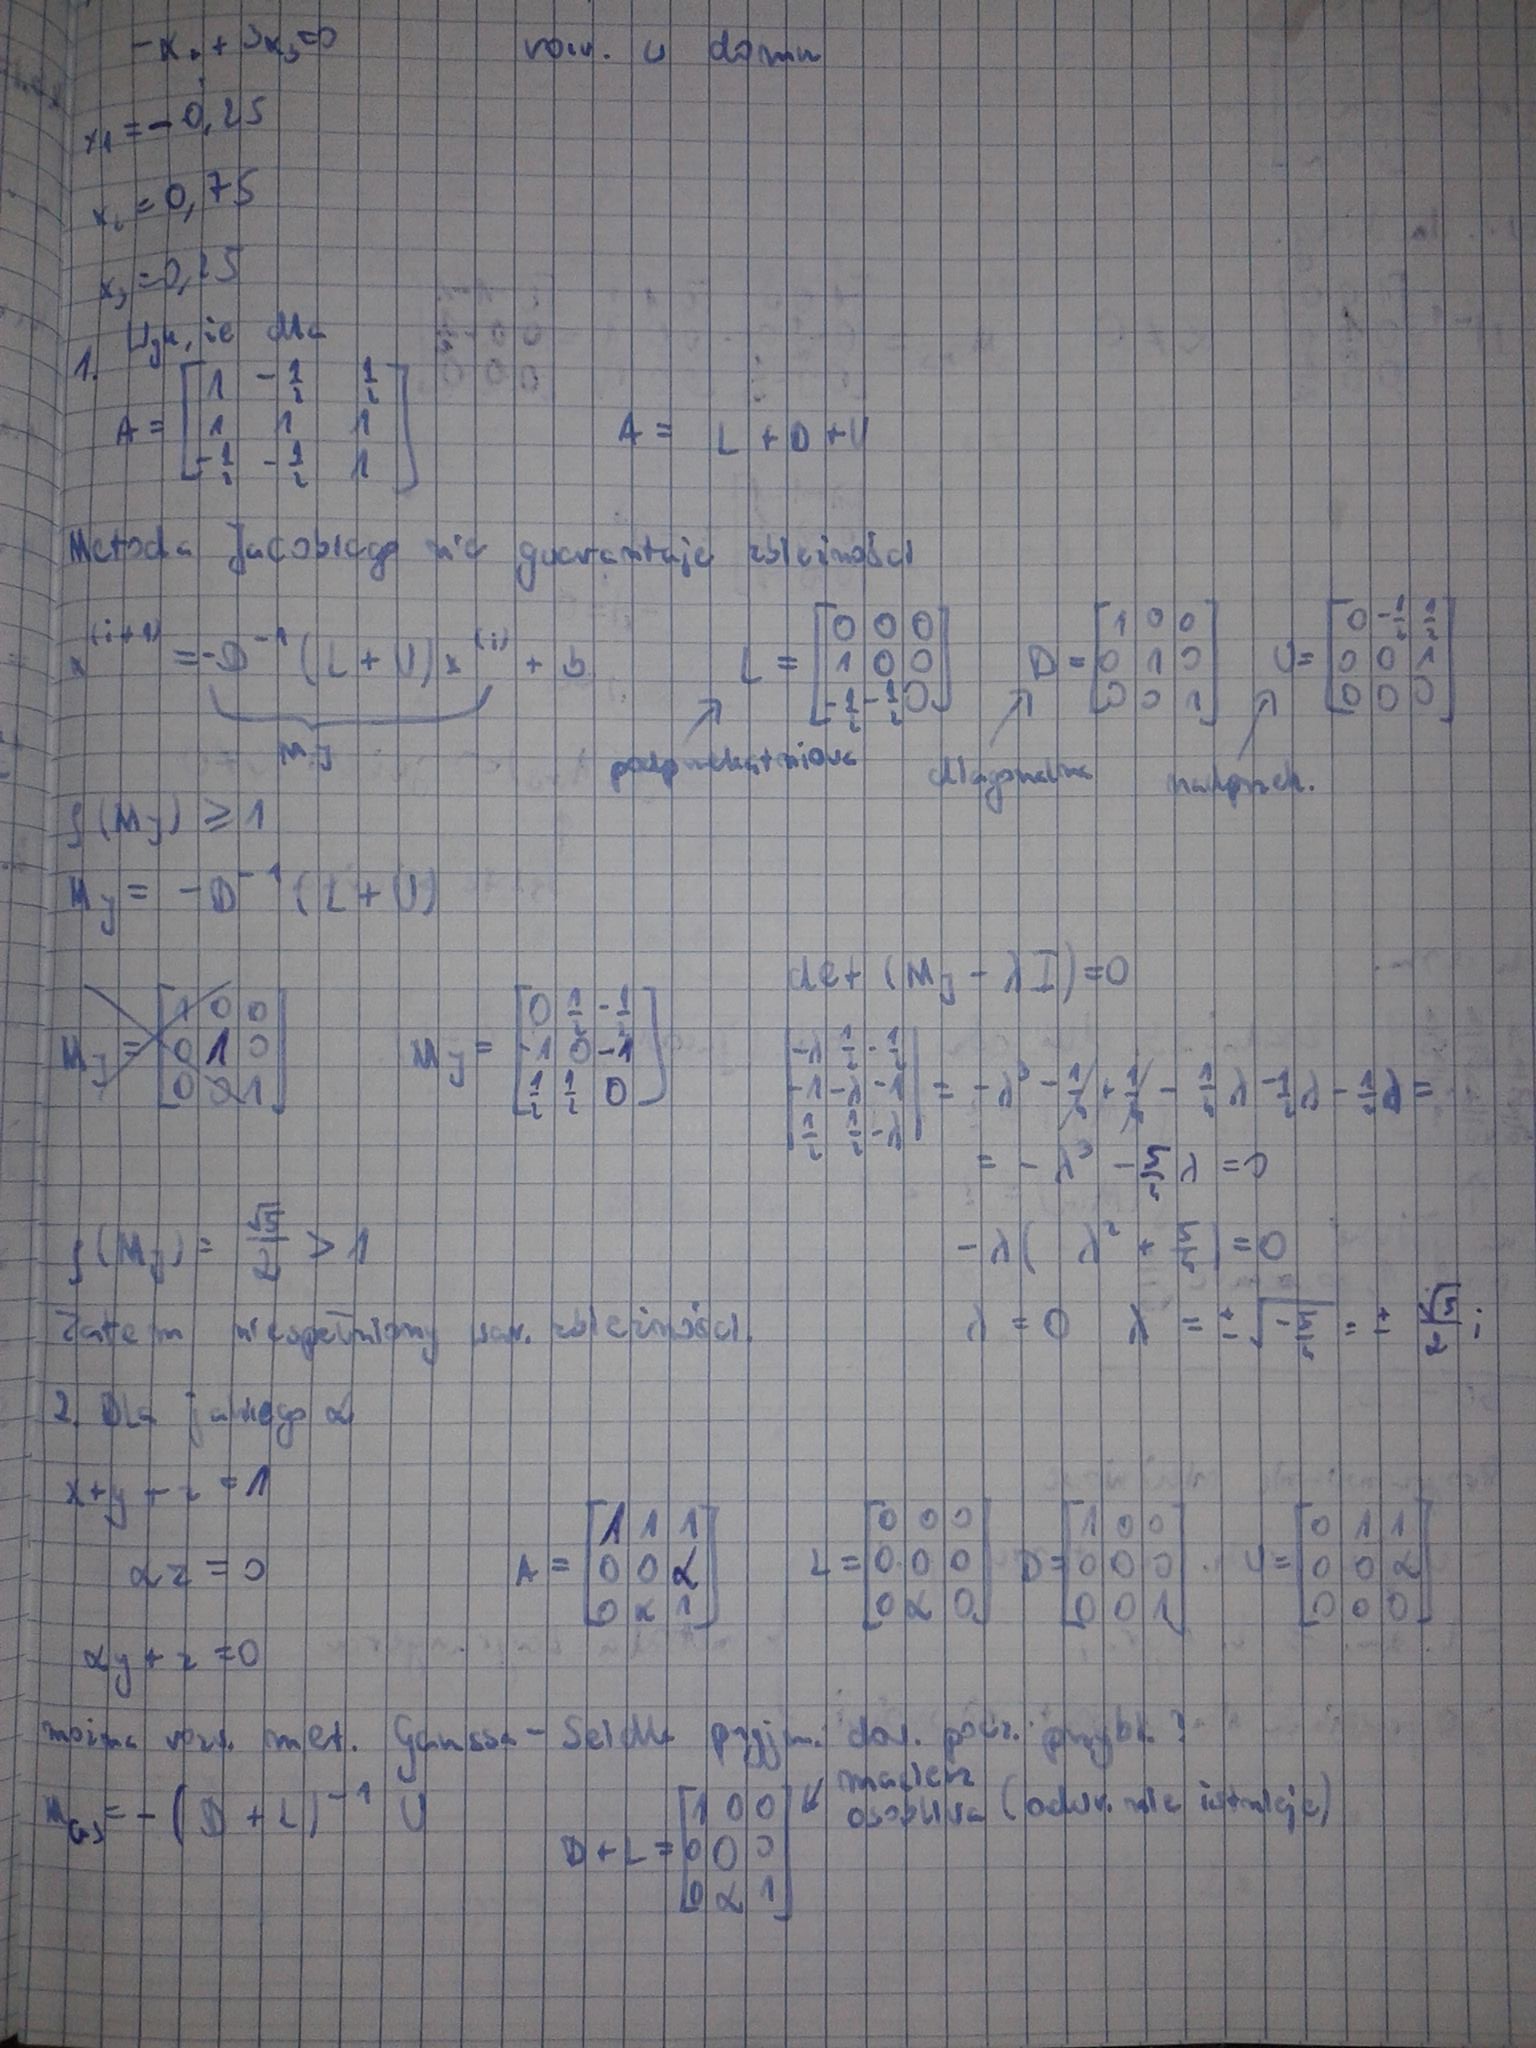 -x₂ + 3x₃ = 0 rozw. w domu
x₁ = -0,25
x₂ = 0,75
x₃ = 0,25
1. Wyk, że dla
A = [1 -1/2 1/2; 1 1 1; -1/2 -1/2 1] A = L + D + U
Metoda Jacobiego nie gwarantuje zbieżności
x^(i+1) = -D^-1 (L + U) x^(i) + b L = [0 0 0; 1 0 0; -1/2 -1/2 0] D = [1 0 0; 0 1 0; 0 0 1] U = [0 -1/2 1/2; 0 0 1; 0 0 0]
M_J podprzekątniowa diagonalna nadprzek.
ρ(M_J) ≥ 1
M_J = -D^-1 (L + U)
det (M_J - λI) = 0
M_J = [1 0 0; 0 1 0; 0 0 1] M_J = [0 1/2 -1/2; -1 0 -1; 1/2 1/2 0] |-λ 1/2 -1/2; -1 -λ -1; 1/2 1/2 -λ| = -λ³ - 1/4 + 1/4 - 1/4 λ - 1/2 λ - 1/2 λ =
= -λ³ - 5/4 λ = 0
ρ(M_J) = √5/2 > 1 -λ( λ² + 5/4) = 0
Zatem niespełniony war. zbieżności. λ = 0 λ = ±√(-5/4) = ± √5/2 i
2. Dla jakiego α
x + y + z = 1
αz = 0 A = [1 1 1; 0 0 α; 0 α 1] L = [0 0 0; 0 0 0; 0 α 0] D = [1 0 0; 0 0 0; 0 0 1] U = [0 1 1; 0 0 α; 0 0 0]
αy + z = 0
można rozw. met. Gaussa-Seidla przyjm. dow. pocz. przybl.?
M_GS = -(D + L)^-1 U D + L = [1 0 0; 0 0 0; 0 α 1] macierz
osobliwa (odwr. nie istnieje)